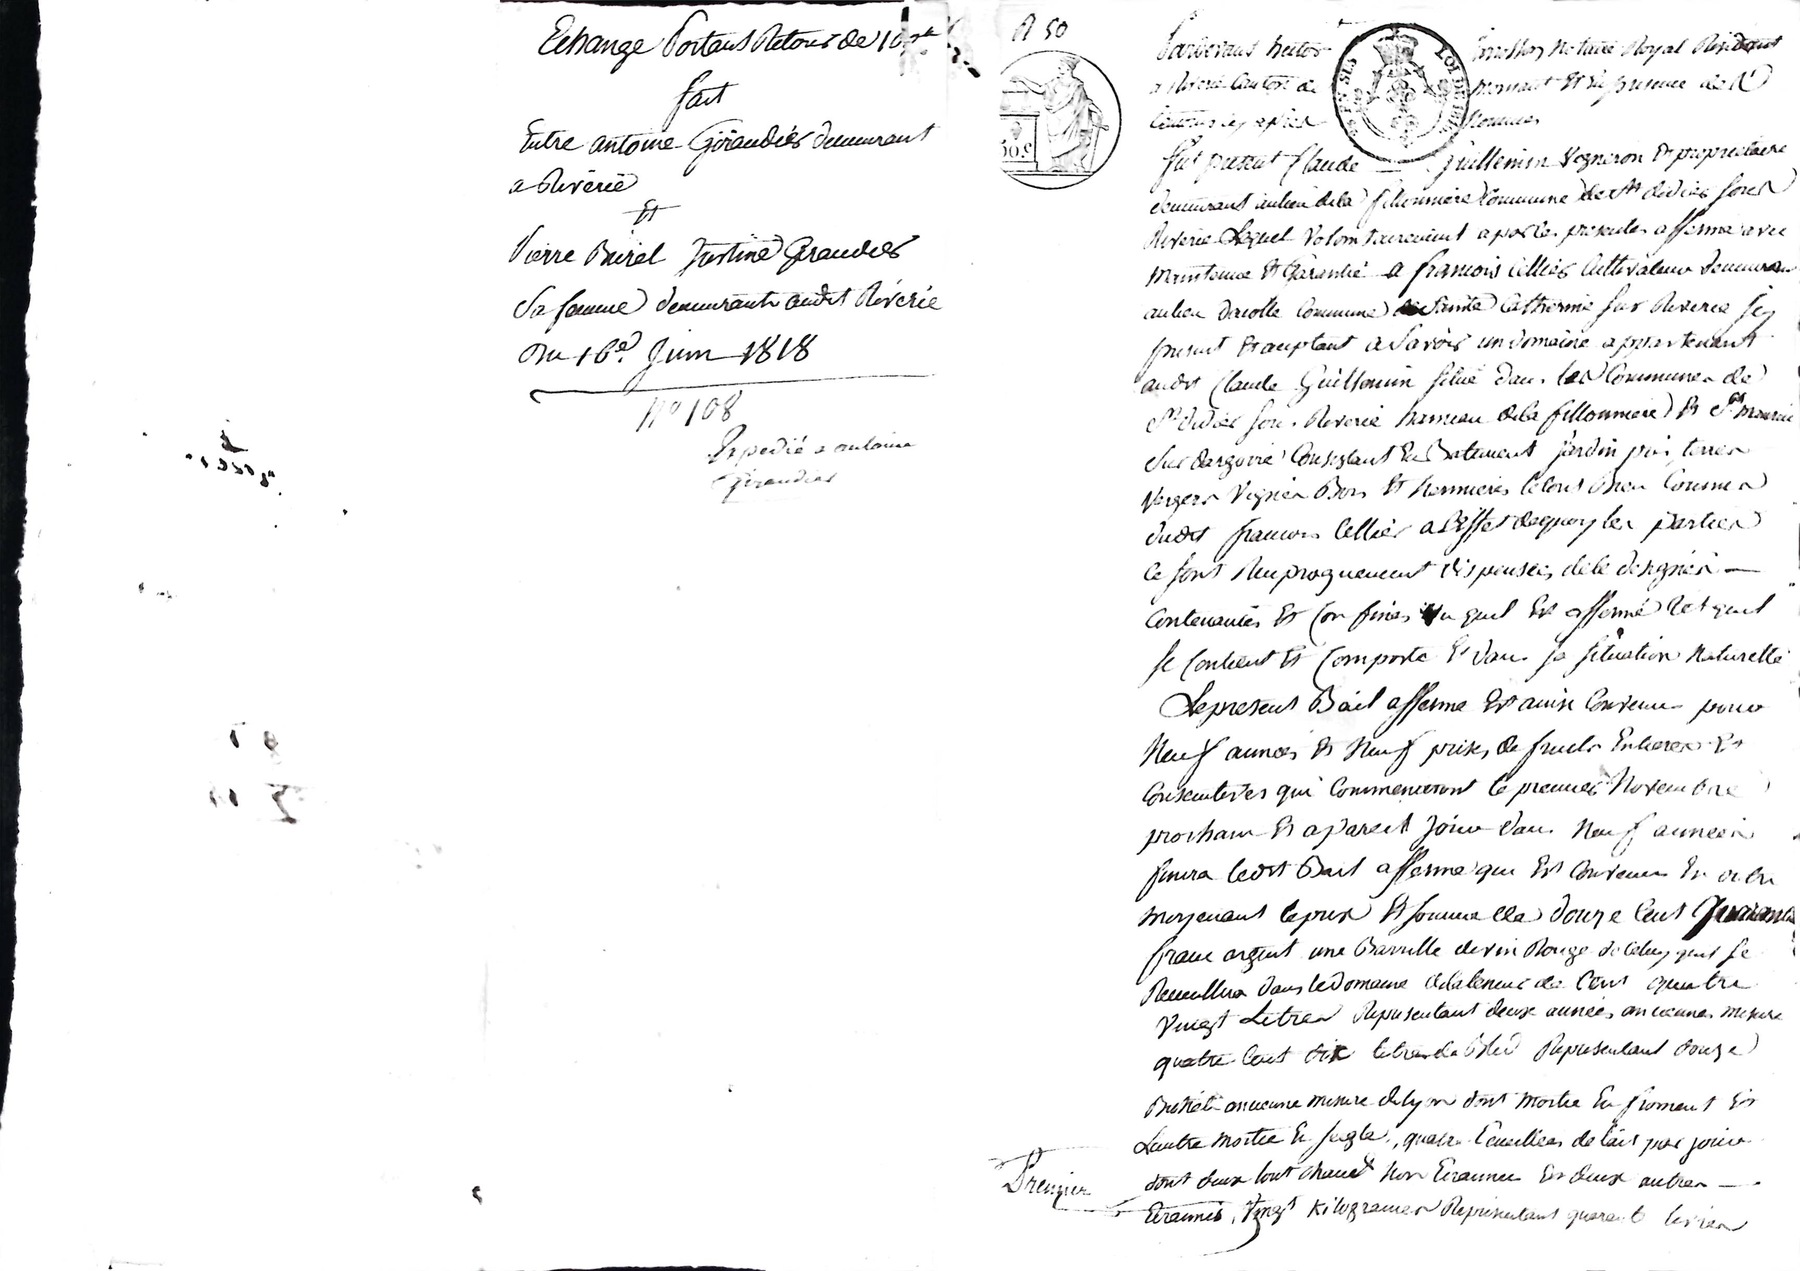 Echange Portant Retour de 10
fait
Entre antoine Giraudier demeurant
a Riverie
Et
Pierre Buirel Justine Giraudier
Sa femme demeurants audit Riverie
Du 16e. Juin 1818
N° 108
Expedié a antoine
Giraudier
R 50
50.c
Pardevant Notaire Royal Residant
a Riverie Canton de Mornant Et En presence de
temoins
fut present Claude Guillemin Vigneron Et proprietaire
demeurant au lieu de la fillonniere Commune de St didier Sous
Riverie Lequel Volontairement a par les presentes afferme avec
Maintenue Et Garantie a francois Cellier Cultivateur demeurant
au lieu Commune de Sainte Catherine Sur Riverie Icy
present Et aceptant a Savoir un domaine appartenant
audit Claude Guillemin Situé dans les Communes de
St didier Sous Riverie hameau de la fillonniere Et St Maurice
Sur dargoire Consistant En Batiment Jardin prés terres
Vergers Vignes Bois Et hermieres le tout Bien Connu
dudit francois Cellier a L'Effet de quoy les parties
Ce sont Reciproquement dispensées de le designer —
Contenances Et Confines quil Est affermé tel quil
Se Contient Et Comporte Et dans Sa Situation Naturelle
Le present Bail a fferme Est ainsi Convenu pour
Neuf années Et Neuf prises de fruits Entieres Et
Consecutives qui Commenceront le premier Novembre
prochain Et a pareil Jour dans Neuf années
finira ledit Bail a fferme qui Est Convenu En outre
moyenant le prix Et Somme de douze Cent Quarante
franc argent une Barrille de vin Rouge de Celuy quil Se
Recuillira dans le domaine de la teneur de Cent quatre
Vingt Litres Representant deux années ancienne mesure
quatre Cent dix litres de Bled Representant douze
Bichets ancienne mesure de lyon dont moitie En froment Et
L'autre moitie En Seigle, quatre Ecuellées de lait par jour
dont deux tout chaud Non Ecramée Et deux autres —
Ecramés, Vingt Kilogrames Representant quarante livres
Premier